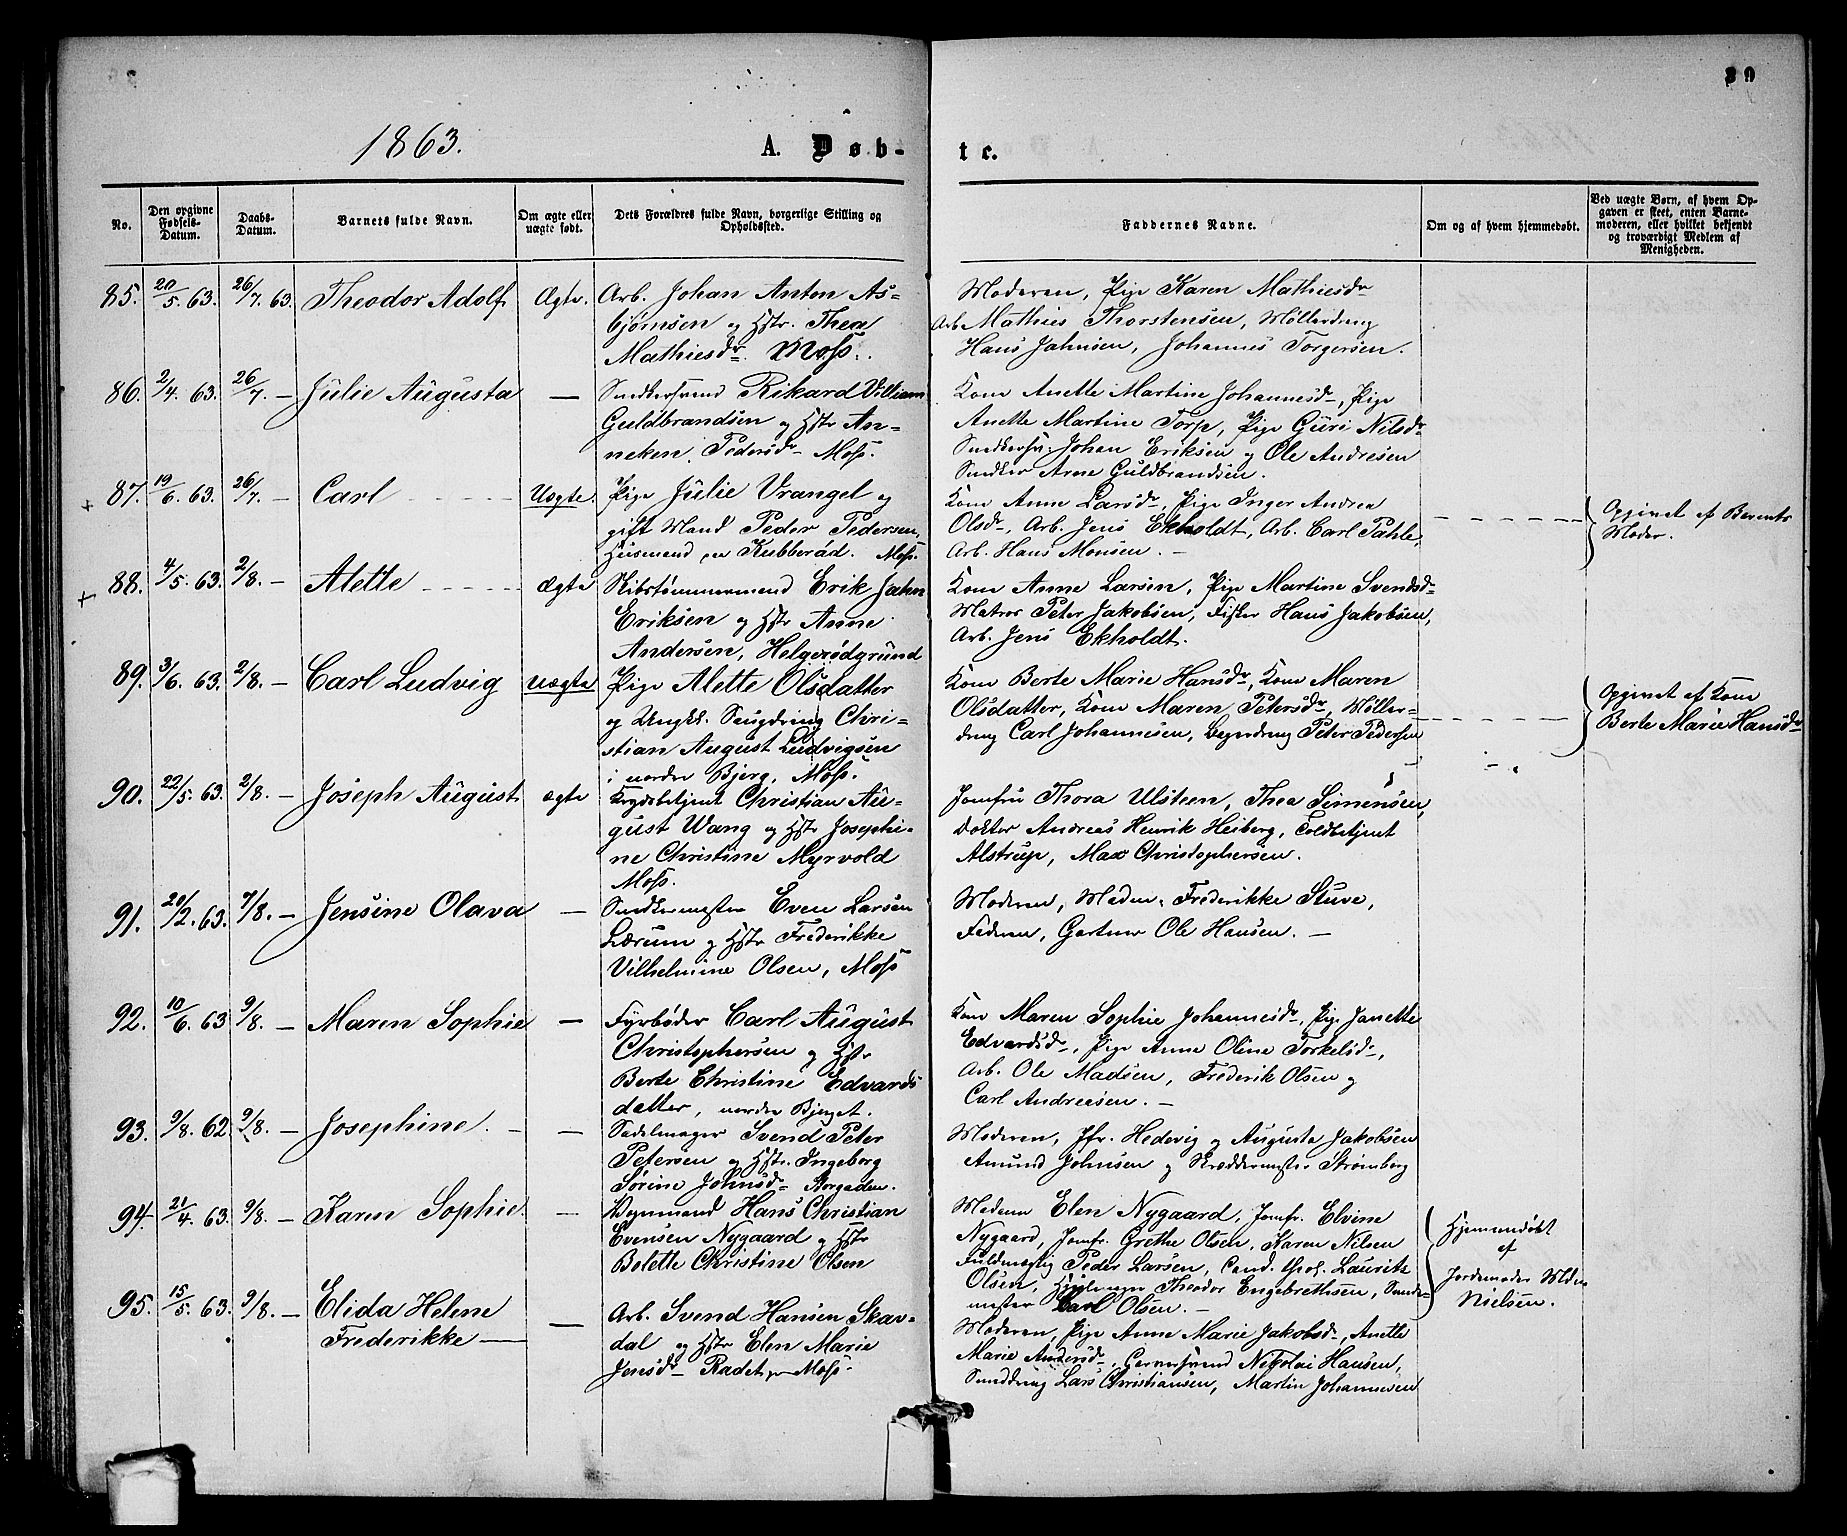 39
1863.
A. Døb-
te.
No.
Den opgivne Fødsels-Datum.
Daabs-Datum.
Barnets fulde Navn.
Om ægte eller uægte født.
Dets Forældres fulde Navn, borgerlige Stilling og Opholdssted.
Faddernes Navne.
Om og af hvem hjemmedøbt.
Ved uægte Børn, af hvem Opgaven er skeet, enten Barnemoderen, eller hvilket bekjendt og troværdigt Medlem af Menigheden.
85. 20/5. 63. 26/7. 63. Theodor Adolf Ægte.
Arb. Johan Anton As-
bjørnsen og Hstr. Thea
Mathiesdr. Moss.
Moderen, Pige Karen Mathiesdr
Arb. Mathies Thorstensen, Møllerdreng
Hans Jahnsen, Johannes Torgersen.
86. 2/4. 63. 26/7. — Julie Augusta —
Snedkersvend Rikard Villiam
Guldbrandsen og Hstr An-
neken Pedersdr Moss.
Kone Anette Martine Johannesdr, Pige
Anette Martine Torp, Pige Guri Nilsdr
Snedkersv. Johan Eriksen og Ole Andresen
Snedker Arne Guldbrandsen.
+ 87. 19/6. 63. 26/7. — Carl Uægte.
Pige Julie Vrangel og
gift Mand Peder Pedersen,
Husmand paa Kubberød. Moss.
Kone Anne Larsdr, Pige Inger Andrea
Olsdr, Arb. Jens Ekholdt, Arb. Carl Pahle,
Arb. Hans Monsen. —
Opgivet af Barnets
Moder.
+ 88. 4/5. 63. 2/8. — Alette Ægte
Skibstømmermand Erik Jahn
Eriksen og Hstr Anne
Andersen, Helgerødgrund
Kone Anne Larsen, Pige Martine Svendsdr
Matros Peter Jakobsen, Fisker Hans Jakobsen,
Arb. Jens Ekholdt.
89. 3/6. 63. 2/8. — Carl Ludvig Uægte
Pige Alette Olsdatter
og Ungk. Saugdreng Chri-
stian August Ludvigsen
i nordre Bjerg, Moss.
Kone Berte Marie Hansdr, Kone Maren
Olsdatter, Kone Maren Petersdr, Møller-
dreng Carl Johannesen, Peter Pedersen
Opgivet af Kone
Berte Marie Hansdr
90. 22/5. 63. 2/8. — Joseph August ægte
Krydsbetjent Christian Au-
gust Wang og Hstr Josephi-
ne Christine Myrvold
Moss.
Jomfru Thora Ulsteen, Thea Simensen,
Doktor Andreas Henrik Heiberg, Toldbetjent
Alstrup, Max Christophersen.
91. 20/2. 63. 7/8. — Jensine Olava —
Snedkermester Even Larsen
Lærum og Hstr Frederikke
Vilhelmine Olsen, Moss
Moderen, Madm. Frederikke Stuve,
Faderen, Gartner Ole Hansen. —
92. 10/6. 63 9/8. — Maren Sophie —
Fyrbøder Carl August
Christophersen og Hstr
Berte Christine Edvards
datter, nordre Bjerget.
Kone Maren Sophie Johannesdr, Pige Janette
Edvardsdr, Pige Anne Oline Torkelsdr,
Arb. Ole Madsen, Frederik Olsen og
Carl Andreasen. —
93. 9/8. 62. 9/8. — Josephine. —
Sadelmager Svend Peter
Petersen og Hstr. Ingeborg
Sørine Johnsdr Storgaden.
Moderen, Jfr. Hedevig og Augusta Jakobsen
Amund Johnsen og Skræddermester Strømberg
94. 21/4. 63. 9/8. — Karen Sophie. —
Vognmand Hans Christian
Evensen Nygaard og Hstr
Bolette Christine Olsen
Madame Elen Nygaard, Jomfr. Elvine
Nygaard, Jomfr. Grethe Olsen, Karen Nilsen
Fuldmægtig Peder Larsen, Cand. theol. Laurits
Olsen, Theodor Engebrethsen, Snedker-
mester Carl Olsen. —
Hjemmedøbt
af
Jordemoder Mdm
Nielsen.
95. 15/5. 63. 9/8. — Elida Helene
Frederikke — —
Arb. Svend Hansen Skav-
dal og Hstr Elen Marie
Jensdr Radet pr Moss.
Moderen, Pige Anne Marie Jakobsdr, Anette
Marie Andersdr, Garversvend Nikolai Hansen,
Smeddreng Lars Christiansen, Martin Johannesen